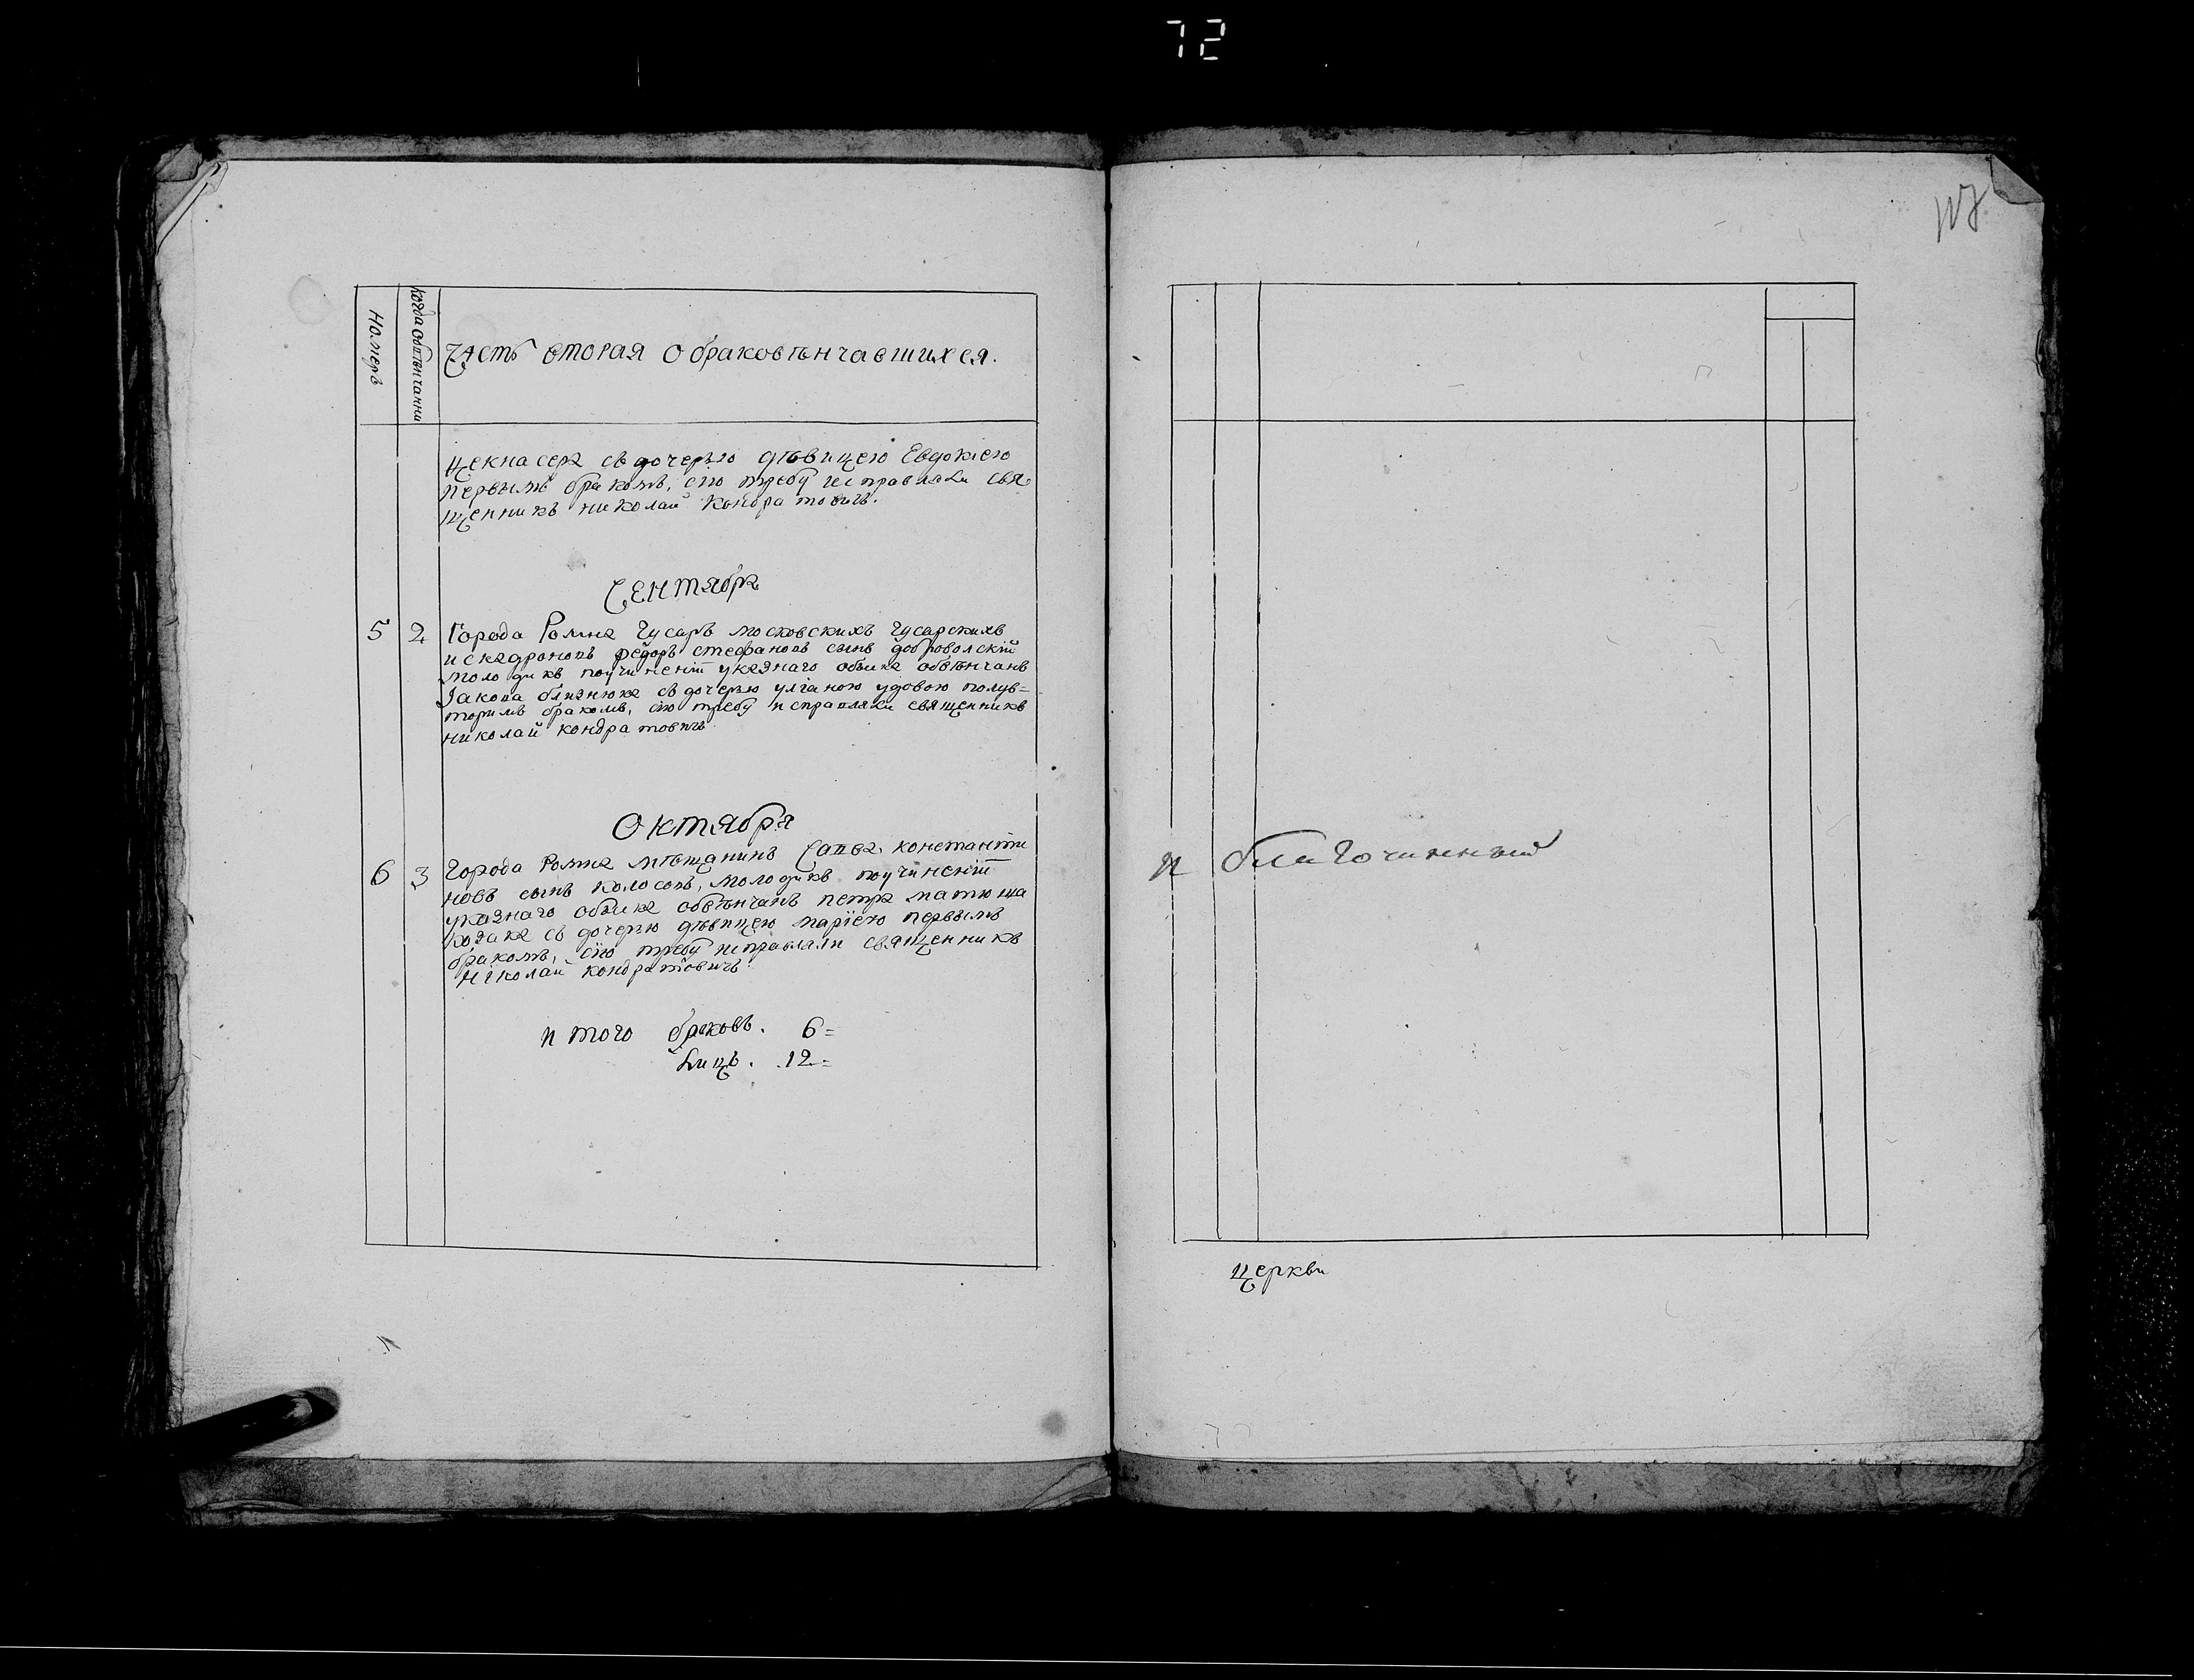 72
Номеръ
когда обвѣнчанни
Часть вторая о браковѣнчавшихся.
сѣ дочерю дѣвицею Евдокіею
первымъ бракомъ, сію требу исправлали свя-
щенникъ николай кондратовичъ.
Сентябра
5 2 Города Ромна гусаръ московскихъ гусарскихъ
искадроновъ федоръ стефановъ сынъ добровольскій
молодикъ поучиненіи указнаго обыска обвѣнчанъ
Іакова близнюка съ дочерью уліаною удовою полув=
торимъ бракомъ, сію требу исправляли священникъ
николай кондратовичъ
Октября
6 3 Города Ромна мѣщанинъ Савва константи
новъ сынъ колосовъ, молодикъ поучиненіи
указнаго обыска обвѣнчанъ петра матюша
козака съ дочерю дѣвицею маріею первымъ
бракомъ, сію требу исправляли священникъ
Ніколай кондратовичъ
итого браковъ. 6=
лицъ. 12=
благочинный
церкви